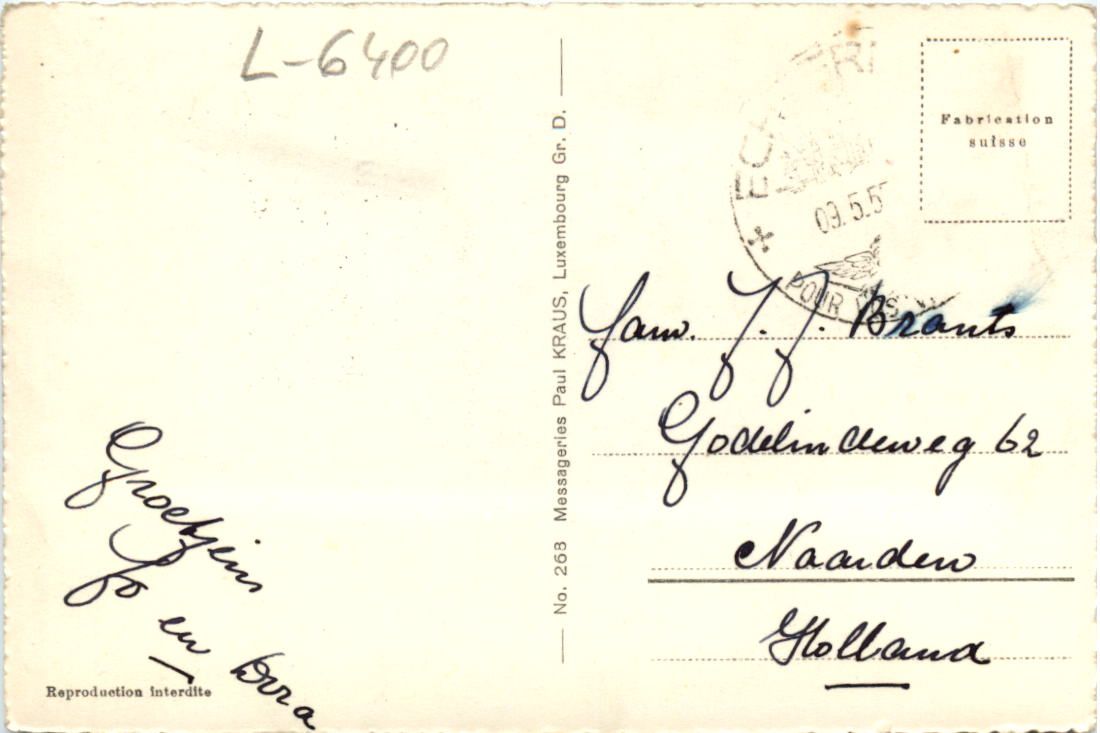 L-6400
Groetjeis
Jo
en Dora
Reproduction interdite
No. 268 Messageries Paul KRAUS, Luxembourg Gr. D.
Fabrication
suisse
09.5.5
POUR
Fam. J. J. Brants
Godelindeweg 62
Naarden
Holland